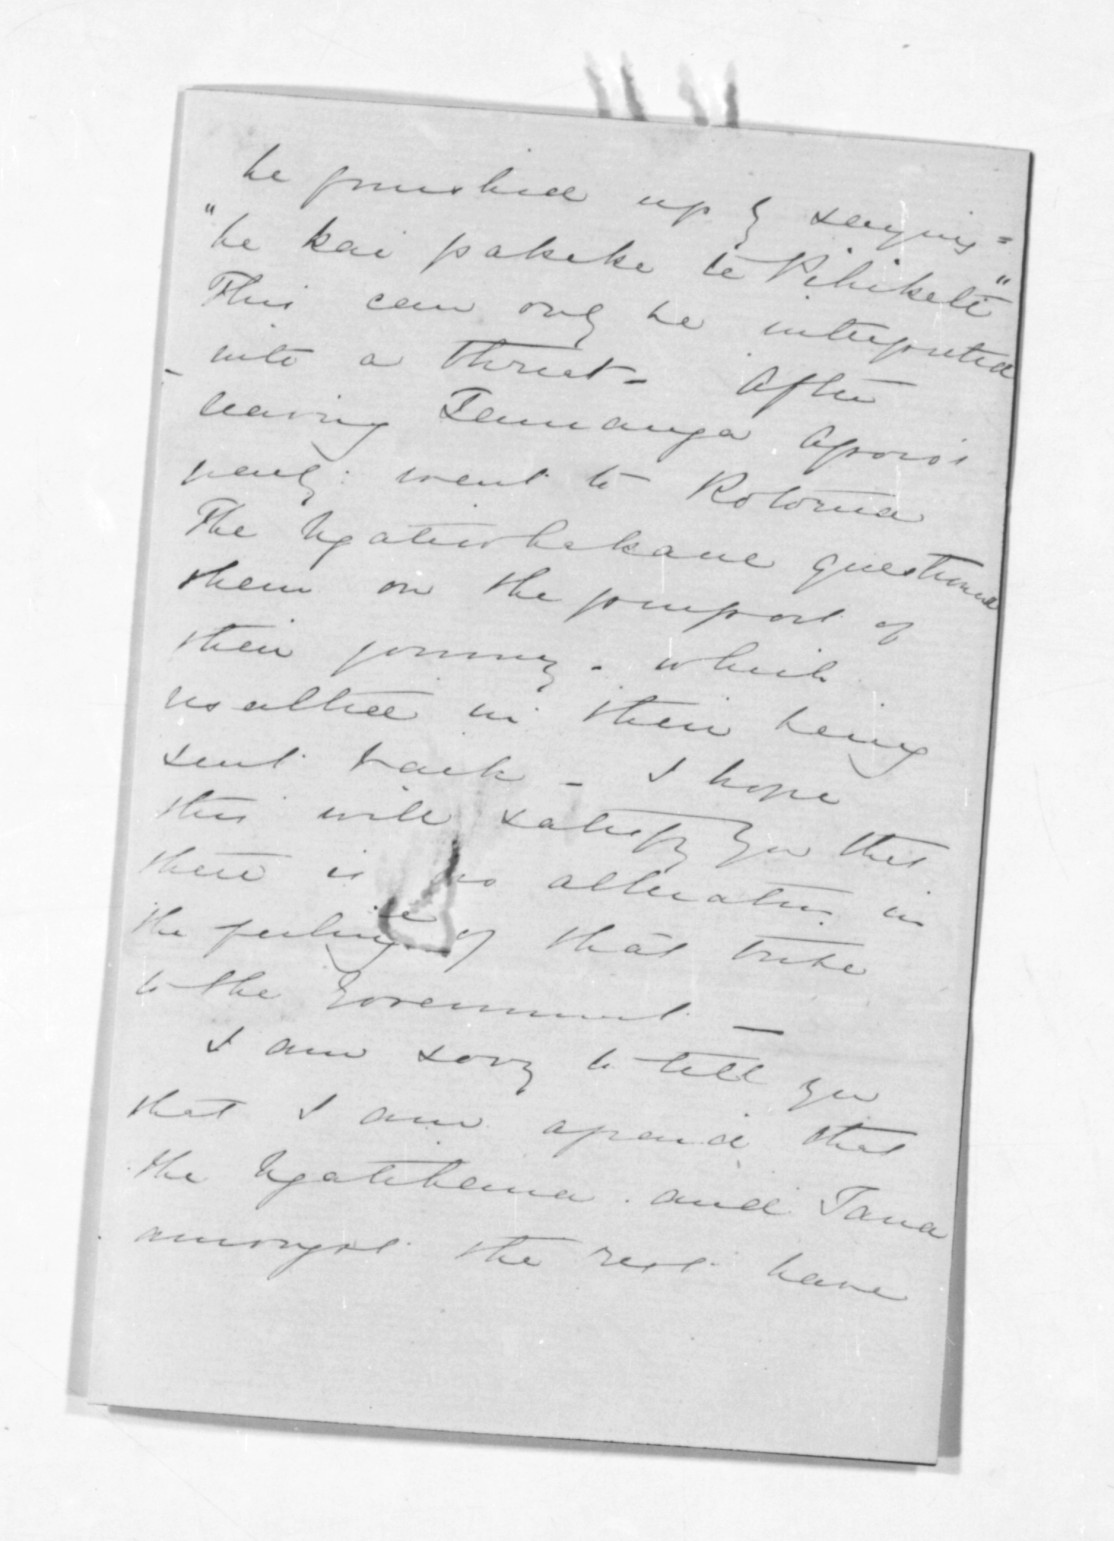 he finished up by saying =
"he kai pakeke te Pihikete"
This can only be interpreted
into a threat - After
leaving Tauranga Aporo's
party went to Rotorua
The Ngatiwhakaue questioned
them on the purport of
their journey - which
resulted in their being
sent back - I hope
this will satisfy you that
there is no alteration in
the feeling of that tribe
to the Government —
I am sorry to tell you
that I am afraid that
the Ngatihaua and Tana
amongst the rest have